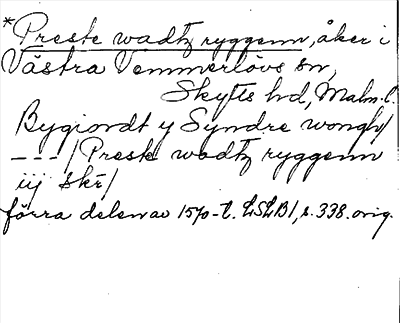 *Preste wadtz ryggenn, åker i
Västra Vemmerlövs sn,
Skytts hd, Malm. l.
Bygiordt y Syndre wongh/
---/Preste wadtz ryggenn
iij skr/
förra delen av 1570-t. LSLB1, s. 338. orig.